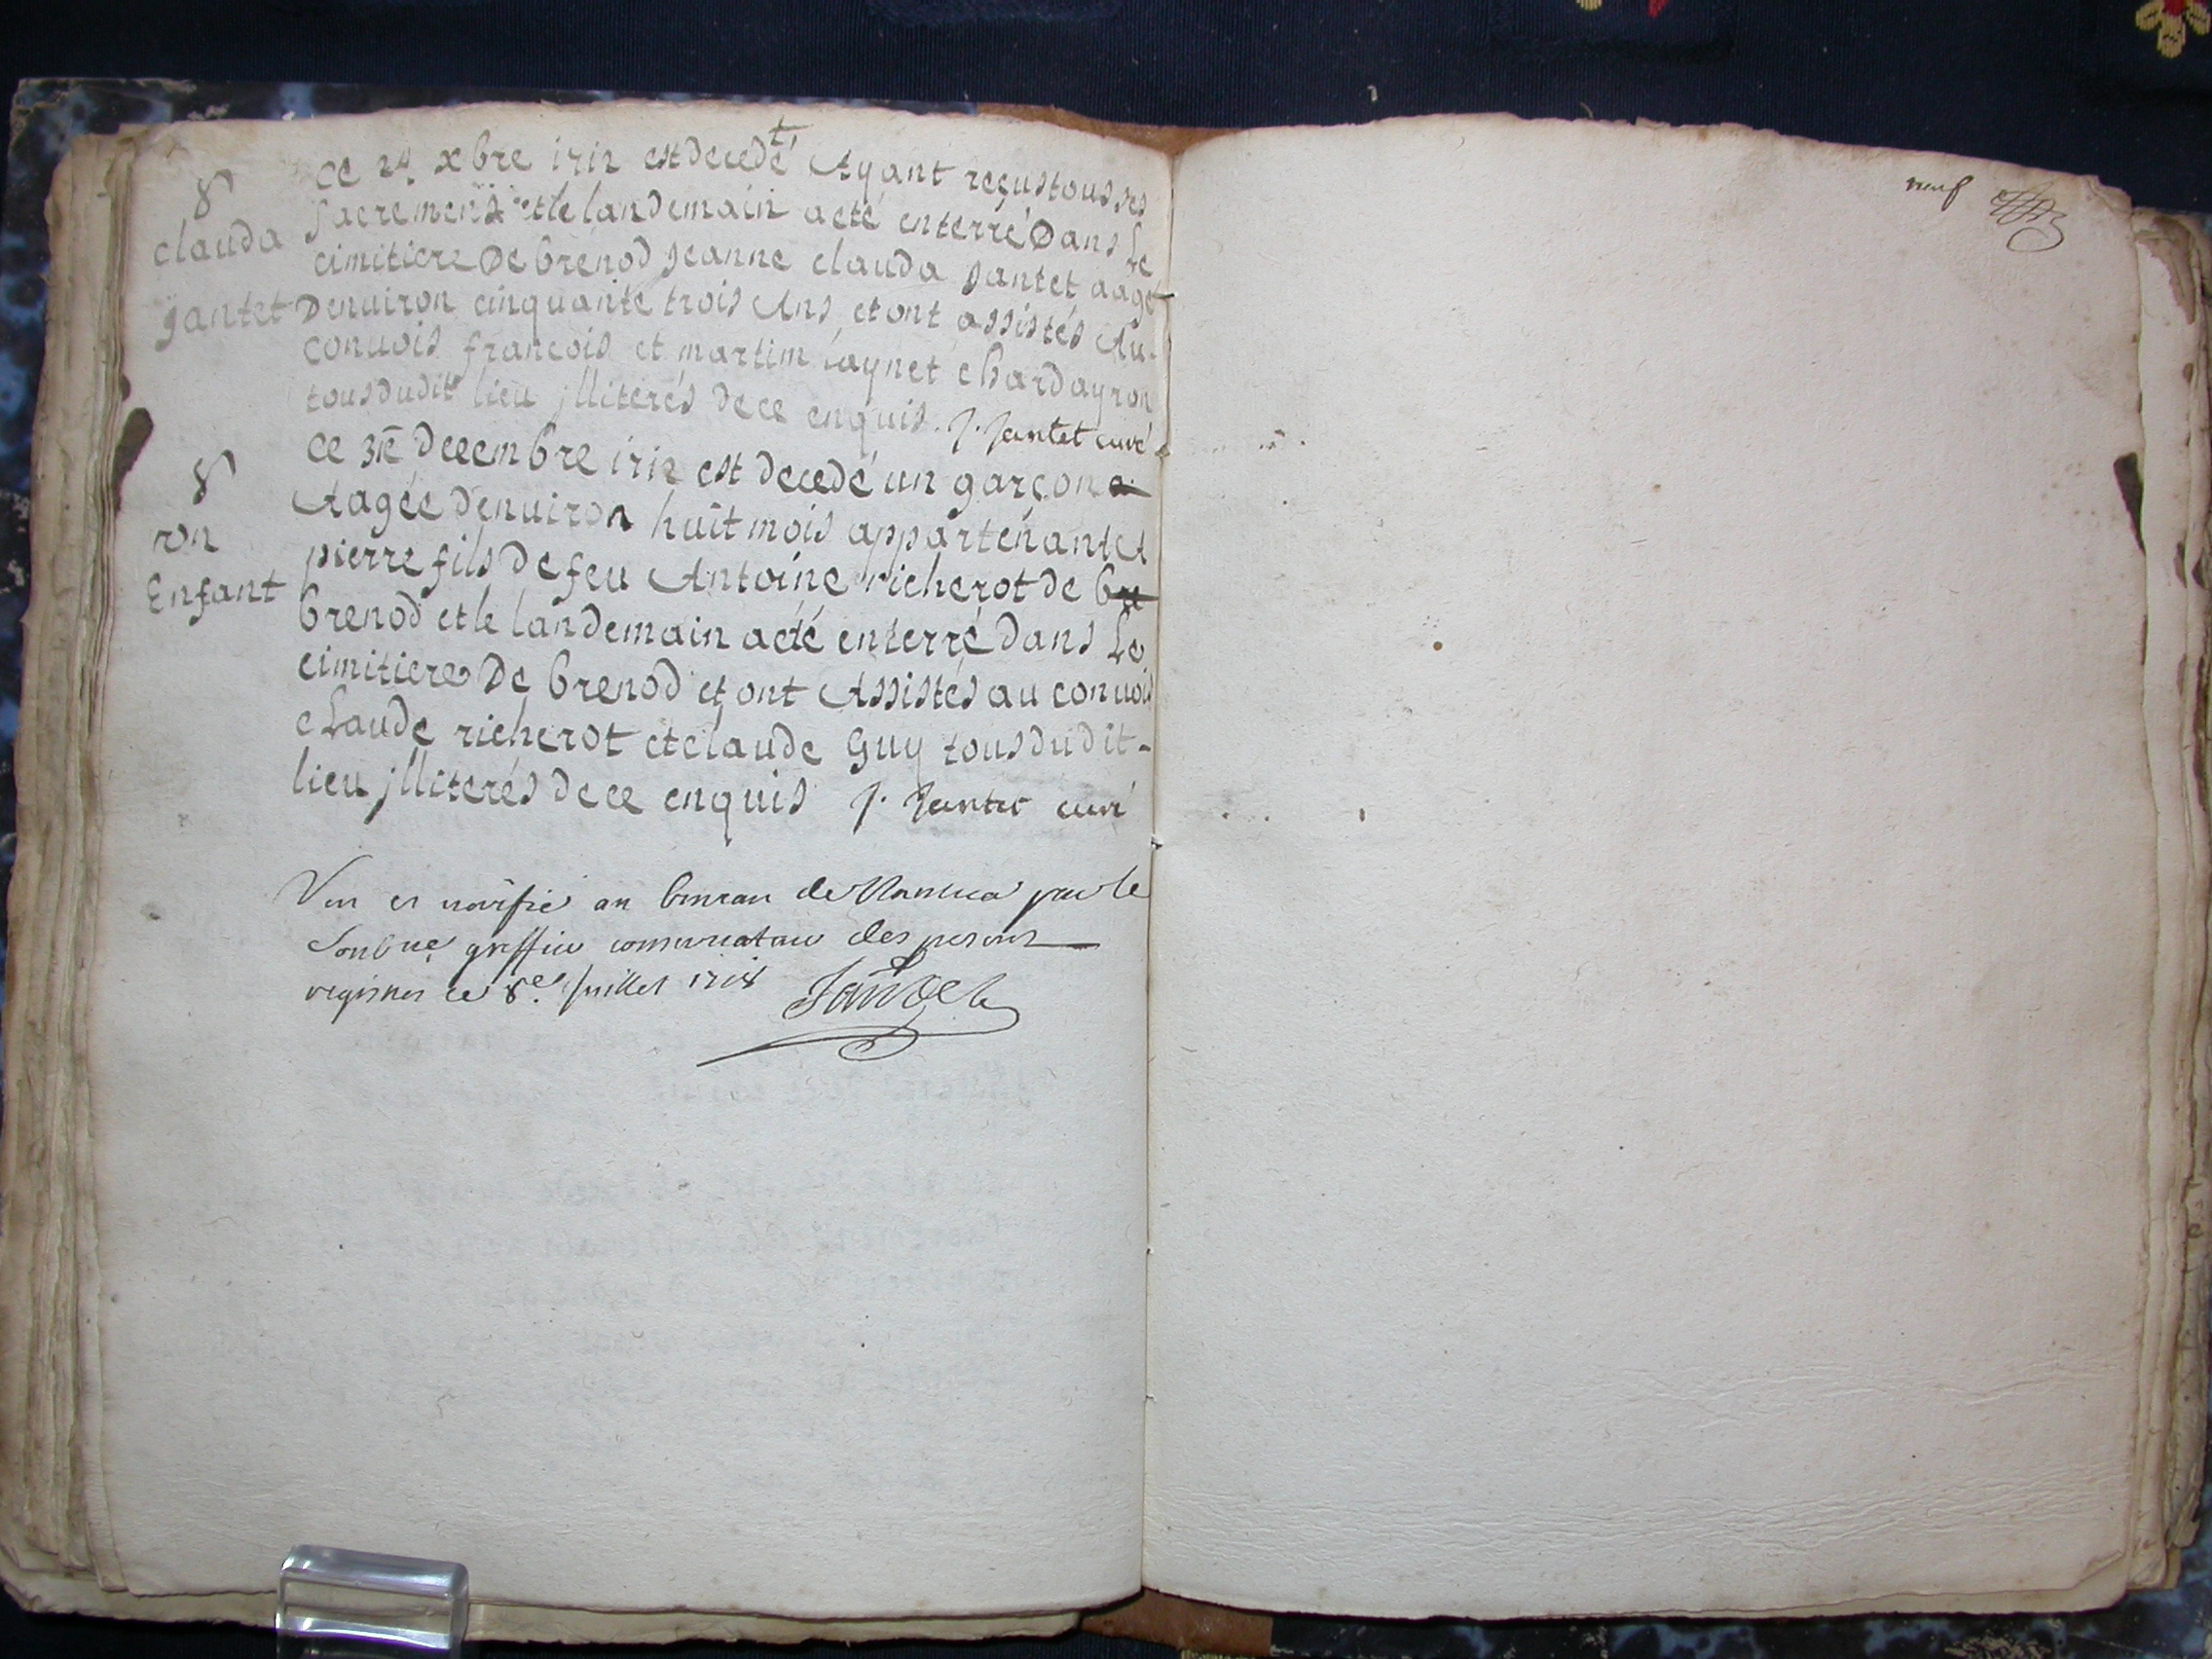 8
clauda
gantet
ce 24 xbre 1712 est decedé Ayant reçus tous ses
sacremens et le landemain a eté enterré Dans Le
cimitiere De brenod Jeanne clauda Jantet aagé
Denuiron cinquante trois Ans et ont assistés Au
conuois francois et martim chardayron
tous dudit lieu jlliterés de ce enquis. J. Jantet curé
8
ron
Enfant
Ce decembre 1712 est decedé un garçon
Aagée denuiron huit mois appartenant et
pierre fils de feu Antoine richerot de bre
brenod et le landemain a eté enterré dans Le
cimitiere De brenod et ont Assistés au conuois
claude richerot et claude Guy tous du dit
lieu jlliterés de ce enquis J. Jantet curé
Veu et verifié au bureau de Nantua par le
Soubné greffier conservateur des presens
registres ce 8e. Juillet 1714
neuf